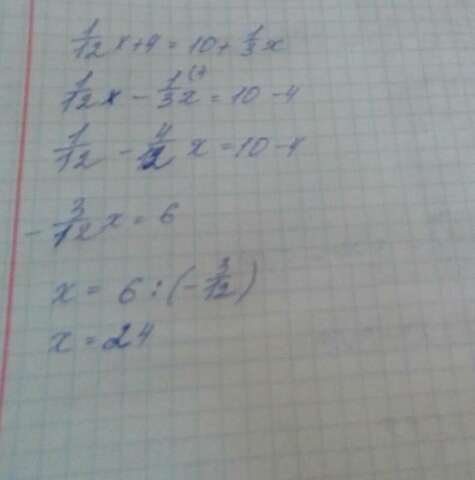 1/12 x + 4 = 10 + 1/3 x
1/12 x - 1/3 x (4 = 10 - 4
1/12 - 4/12 x = 10 - 4
- 3/12 x = 6
x = 6 : (- 3/12)
x = 24